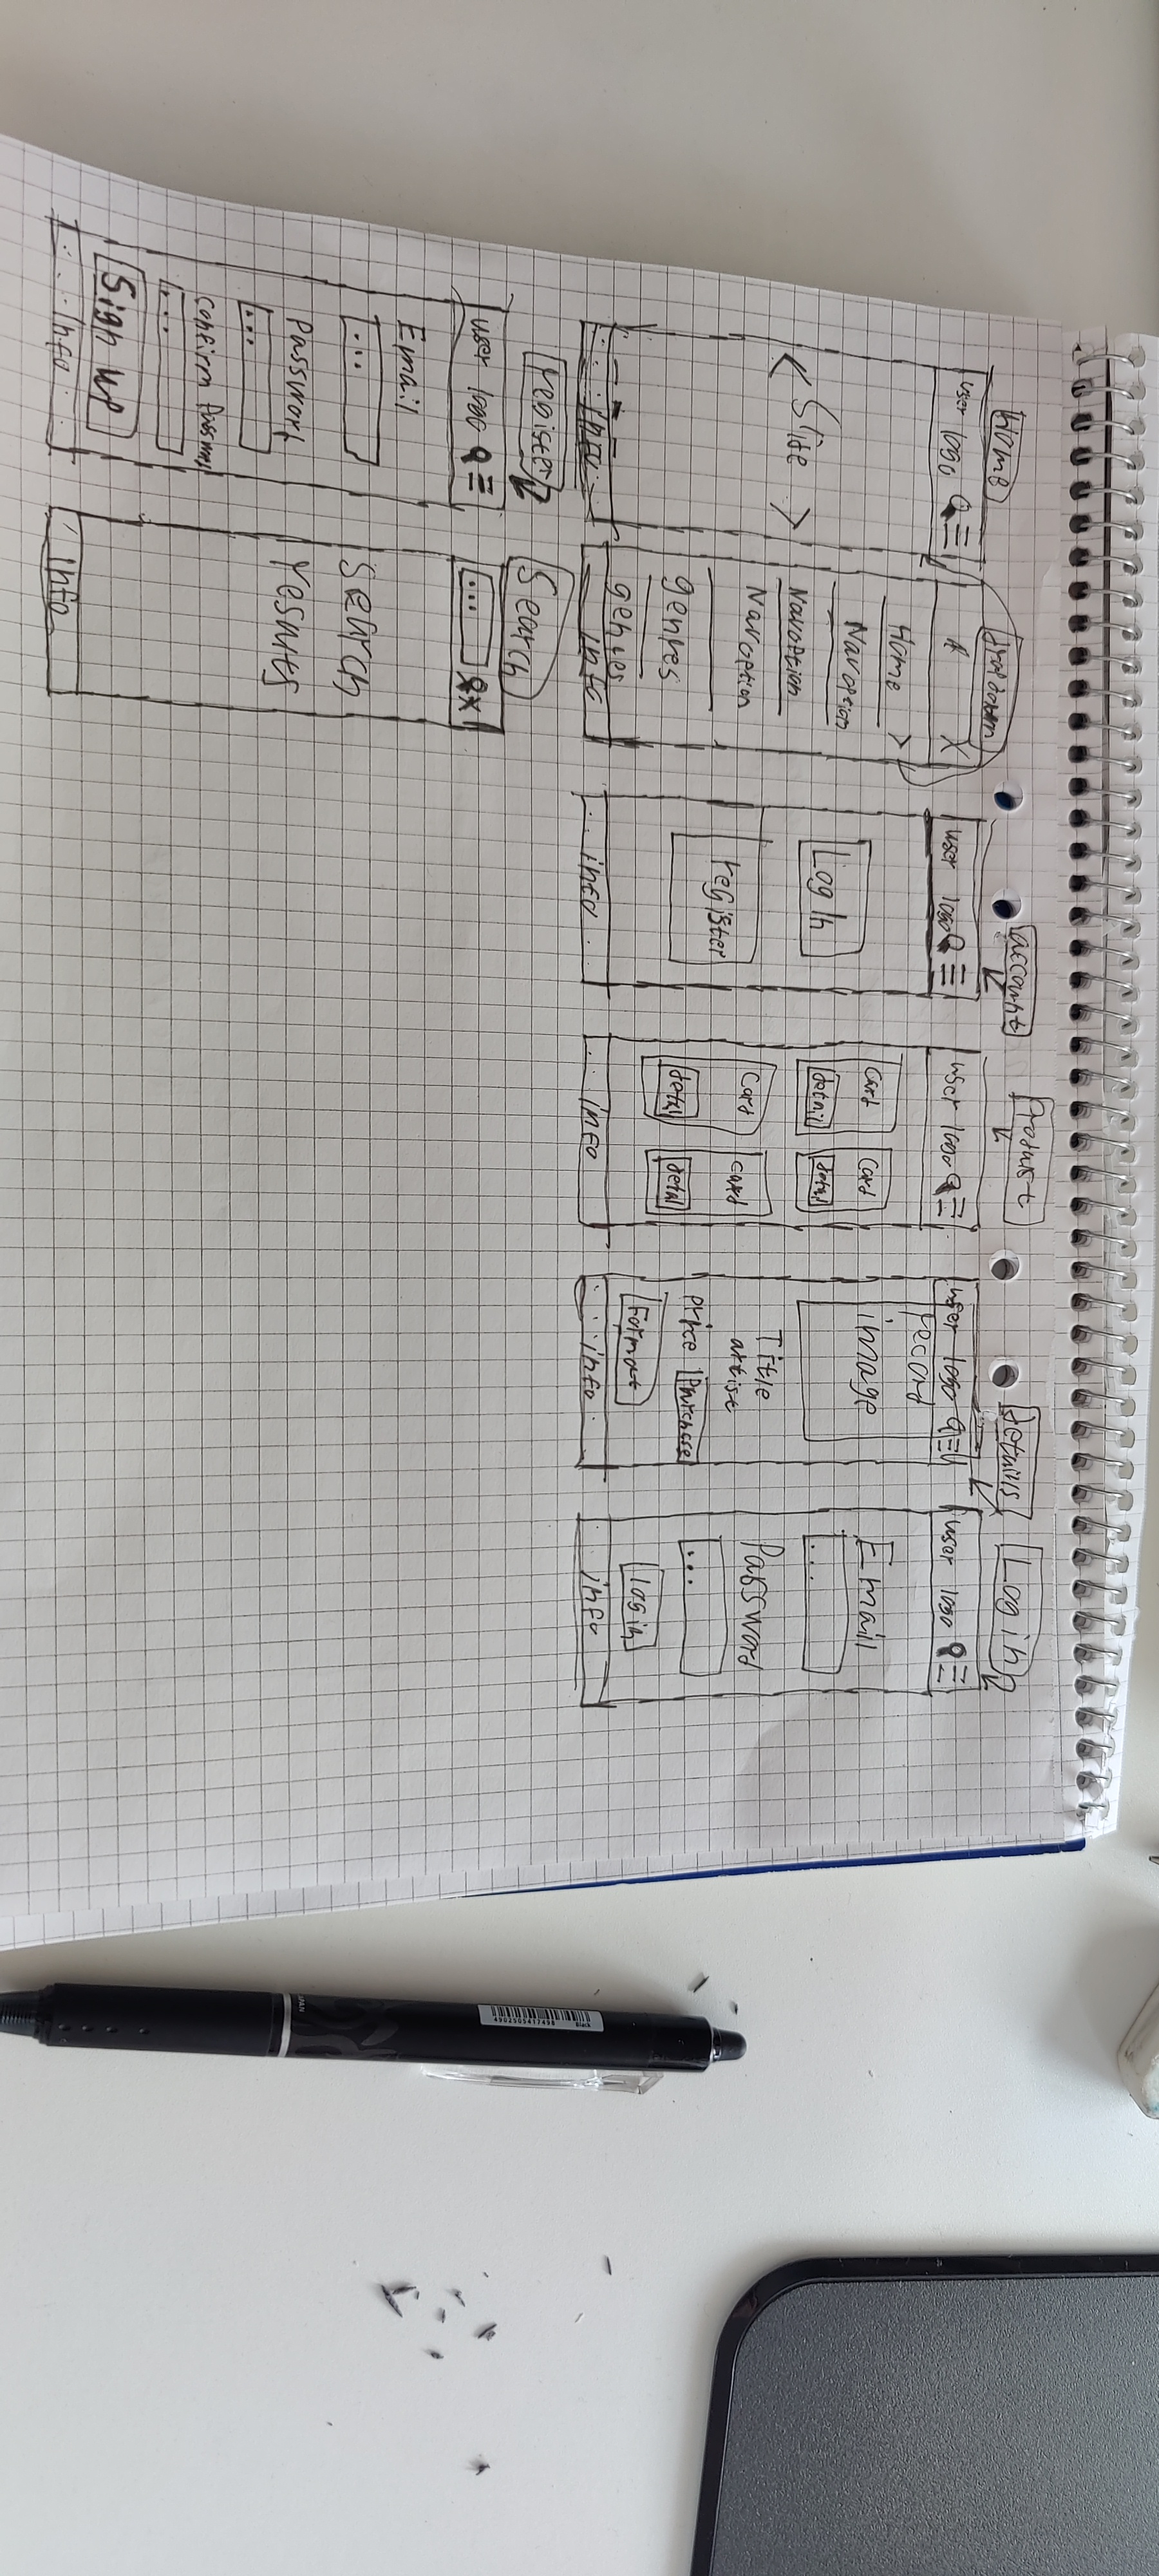 Home
user logo
< Slite >
info
drop down
X
Home >
Nav option
Nav option
Nav option
genres
genres
info
account
user logo
Log in
register
info
Product
user logo
Card
detail
Card
detail
Card
detail
Card
detail
info
details
user logo
record
image
Title
artist
price
Purchase
Format
info
Log in
user logo
Email
...
Password
...
Log in
info
register
user logo
Email
...
Password
...
Confirm
...
Sign up
info
Search
....
X
Search
resuts
info
JAPAN
4902505417498
Black